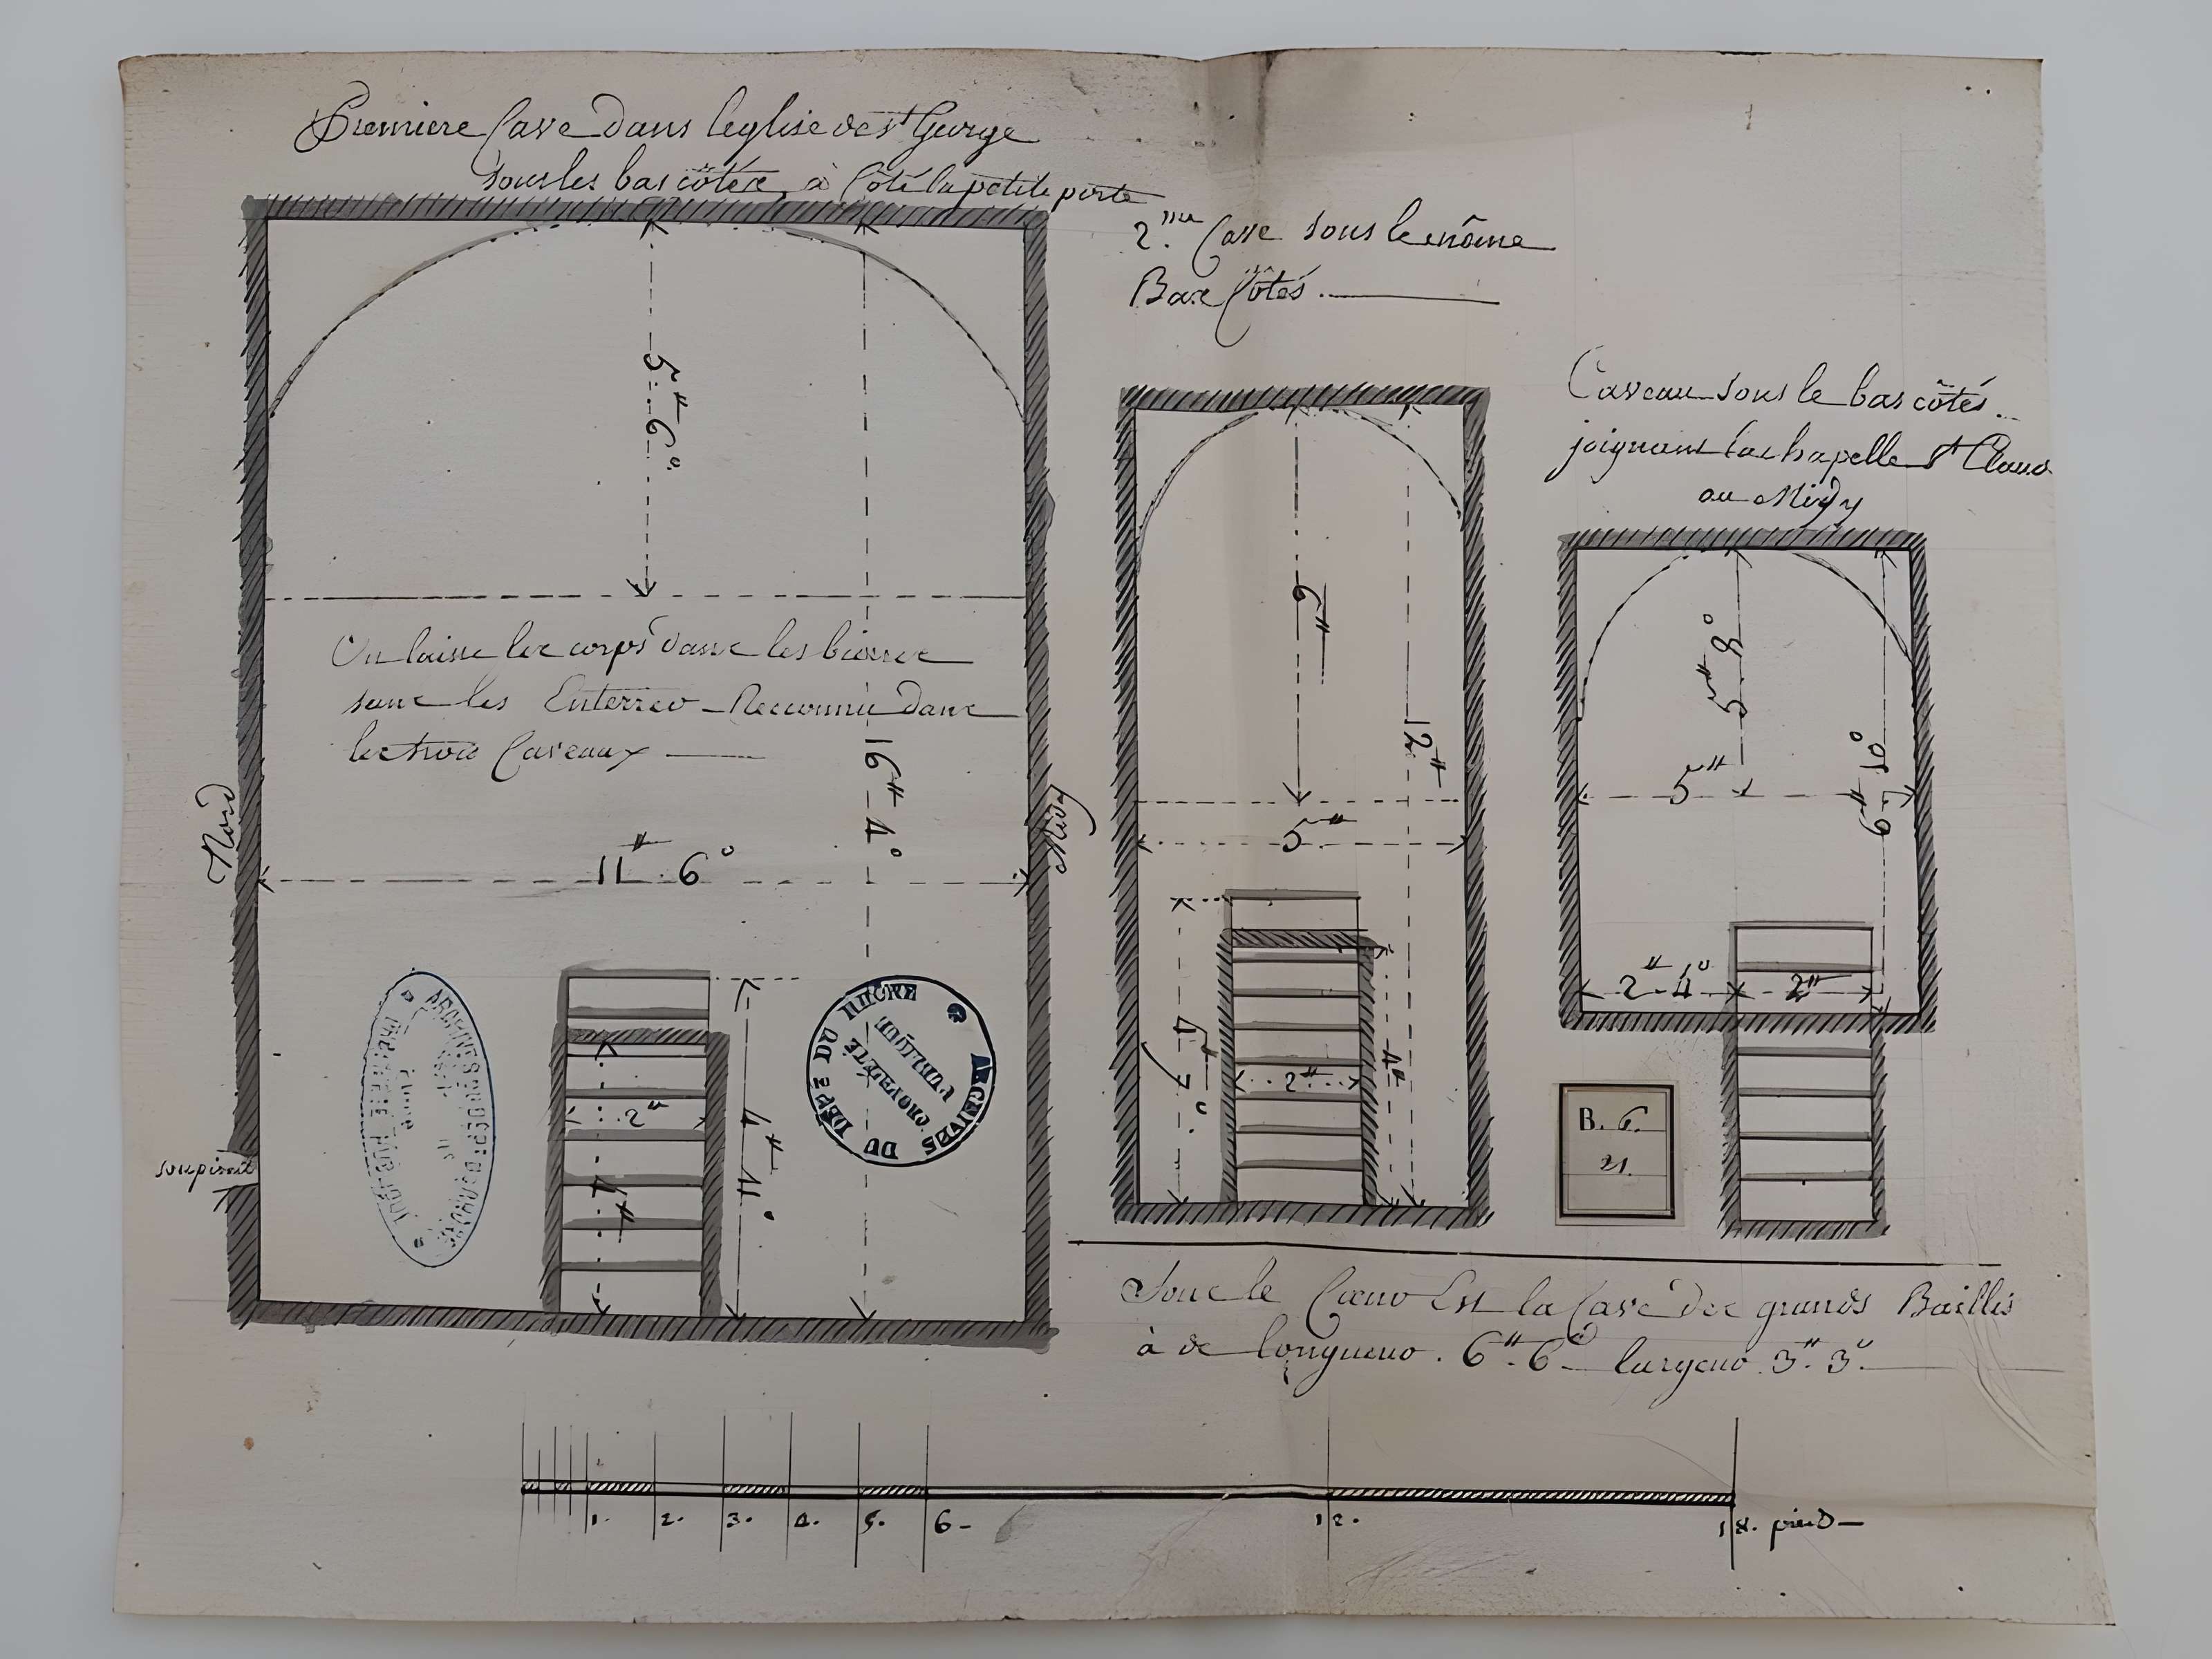 Premiere Cave Dans leglise de st George
sous les bas côtés, à Côté la petite porte
2.me Cave sous le même
Bas Côtés.
Caveau sous le bas côtés
joignant la chapelle st Claud
au Midy
5" 6°
On laisse les corps dans les bierres
sans les Enterrer - Reconnu dans
les trois Caveaux
Nord
Midy
16" 4°
11" 6°
soupirail
2"
4"
4" 11°
9"
12"
5"
2"
4"
5" 8°
5"
6" 10°
2" 4°
2"
ARCHIVES DU DEPT DU DOUBS
B. 6.
21.
Sous le Cœur Est la Cave des grands Baillis
à de longueur. 6" 6° largeur. 3" 3°.
1. 2. 3. 4. 5. 6 - 12. 18. pied